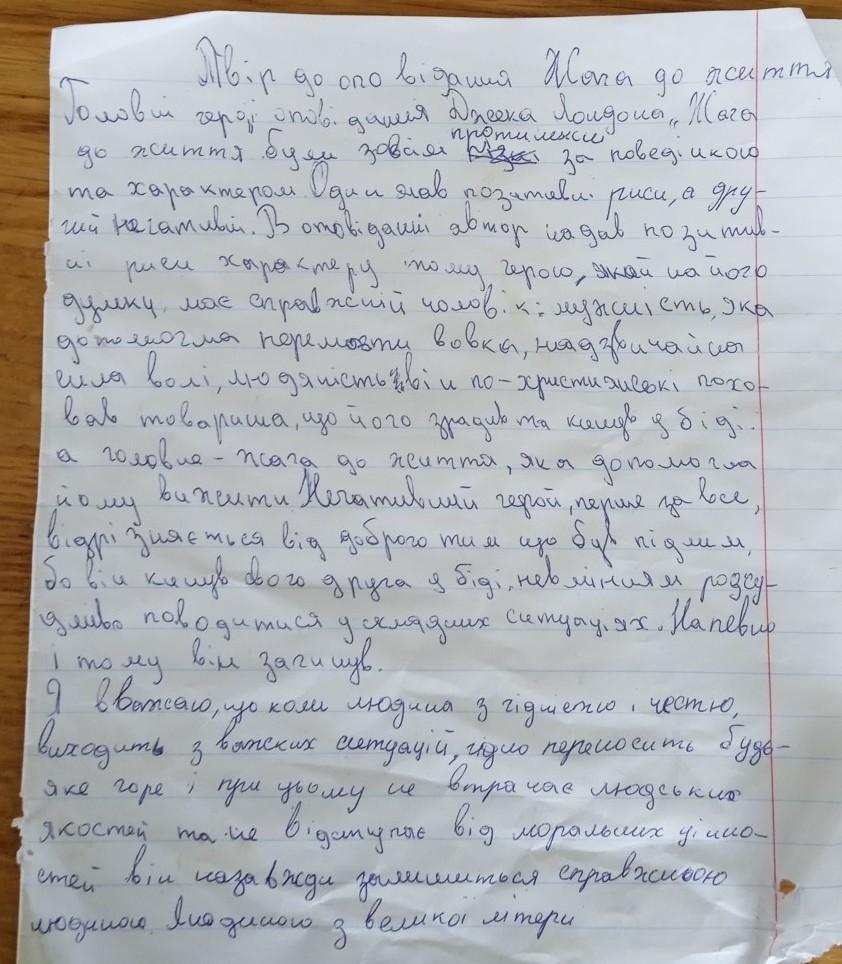 Твір до оповідання Жага до життя
Головні герої оповідання Джека Лондона „Жага
до життя були зовсім протилежні за поведінкою
та характером. Один мав позитивні риси, а дру-
гий негативні. В оповіданні автор надав позитив-
ні риси характеру тому герою, який на його
думку, має справжній чоловік: мужність, яка
допомогла перемогти вовка, надзвичайна
сила волі, людяність, він по-християнські похо-
вав товариша, що його зрадив та кинув у біді.
а головне - жага до життя, яка допомогла
йому вижити. Негативний герой, перше за все,
відрізняється від доброго тим що був підлим,
бо він кинув свого друга у біді, невмінням розсу-
дливо поводитися у складних ситуаціях. Напевно
і тому він загинув.
Я вважаю, що коли людина з гідністю і честю,
виходить з важких ситуацій, гідно переносить будь-
яке горе і при цьому не втрачає людських
якостей та не відступає від моральних цінно-
стей він назавжди залишиться справжньою
людиною. Людиною з великої літери